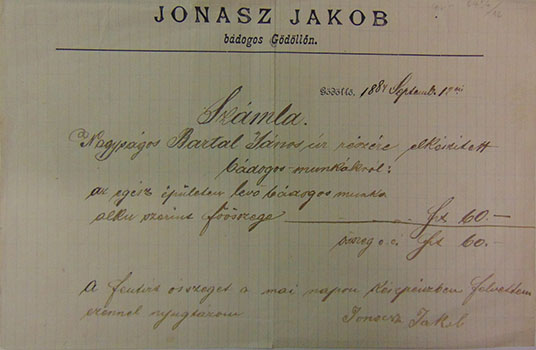 JONASZ JAKOB
bádogos Gödöllőn.
Gödöllő, 1884 Septemb. 1
Számla.
Nagyságos Bartal János úr részére elkészített
bádogos-munkákról:
az egész épületen levő bádogos munka
alku szerint főösszege frt 60.-
összeg o.é. frt 60.-
A fentirt összeget a mai napon készpénzben felvettem
ezennel nyugtazom Jonasz Jakob